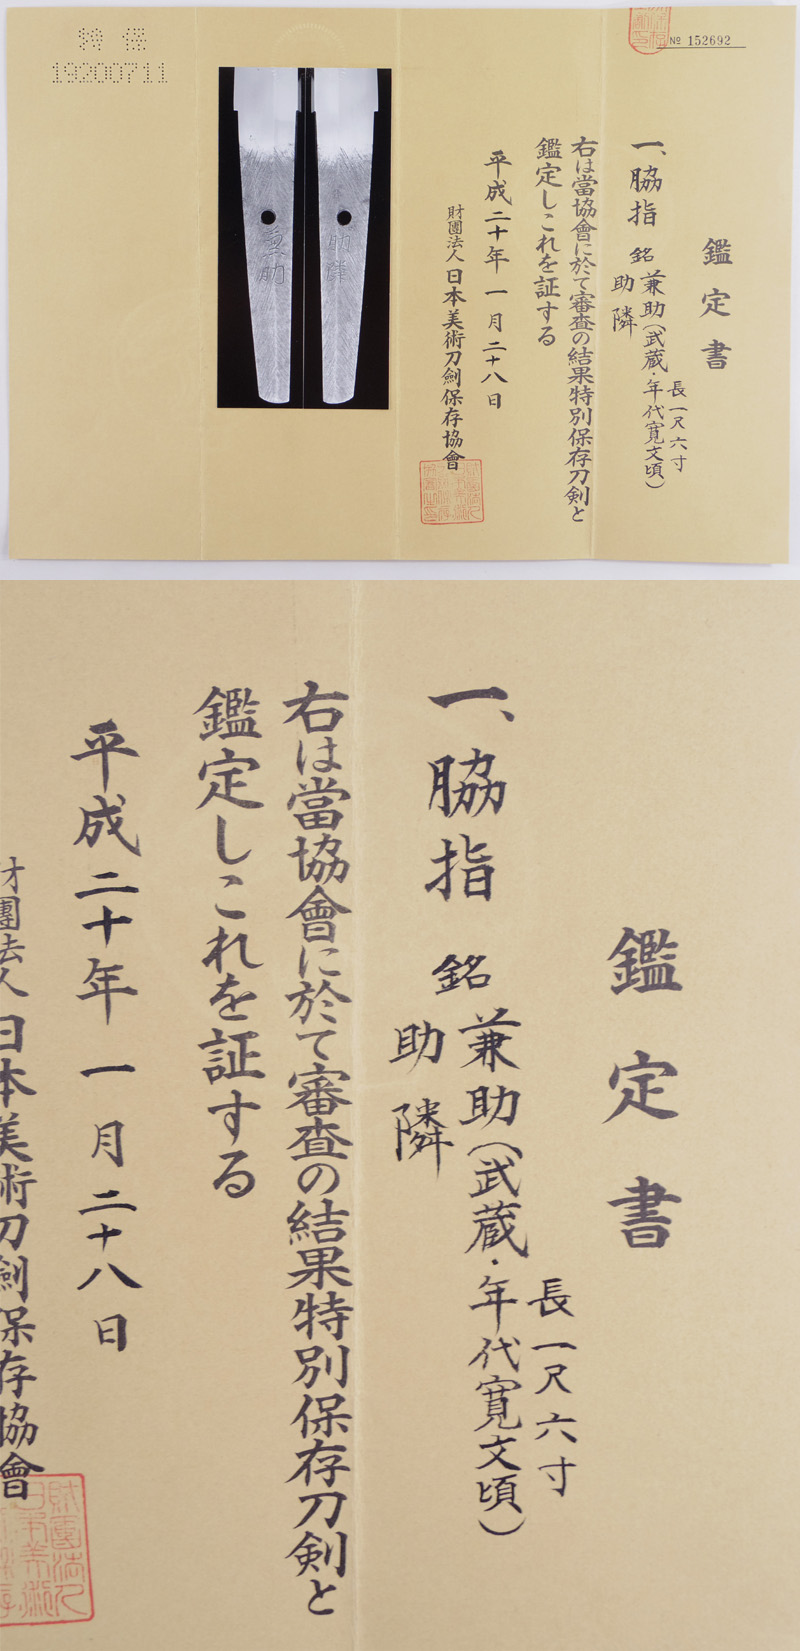 特保
19200711
№ 152692
鑑定書
長一尺六寸
一、脇指 銘 兼助(武蔵・年代寛文頃)
助隣
右は當協會に於て審査の結果特別保存刀剣と
鑑定しこれを証する
平成二十年一月二十八日
財團法人日本美術刀劍保存協會
助隣
兼助
鑑定書
長一尺六寸
一、脇指 銘 兼助(武蔵・年代寛文頃)
助隣
右は當協會に於て審査の結果特別保存刀剣と
鑑定しこれを証する
平成二十年一月二十八日
財團法人日本美術刀劍保存協會